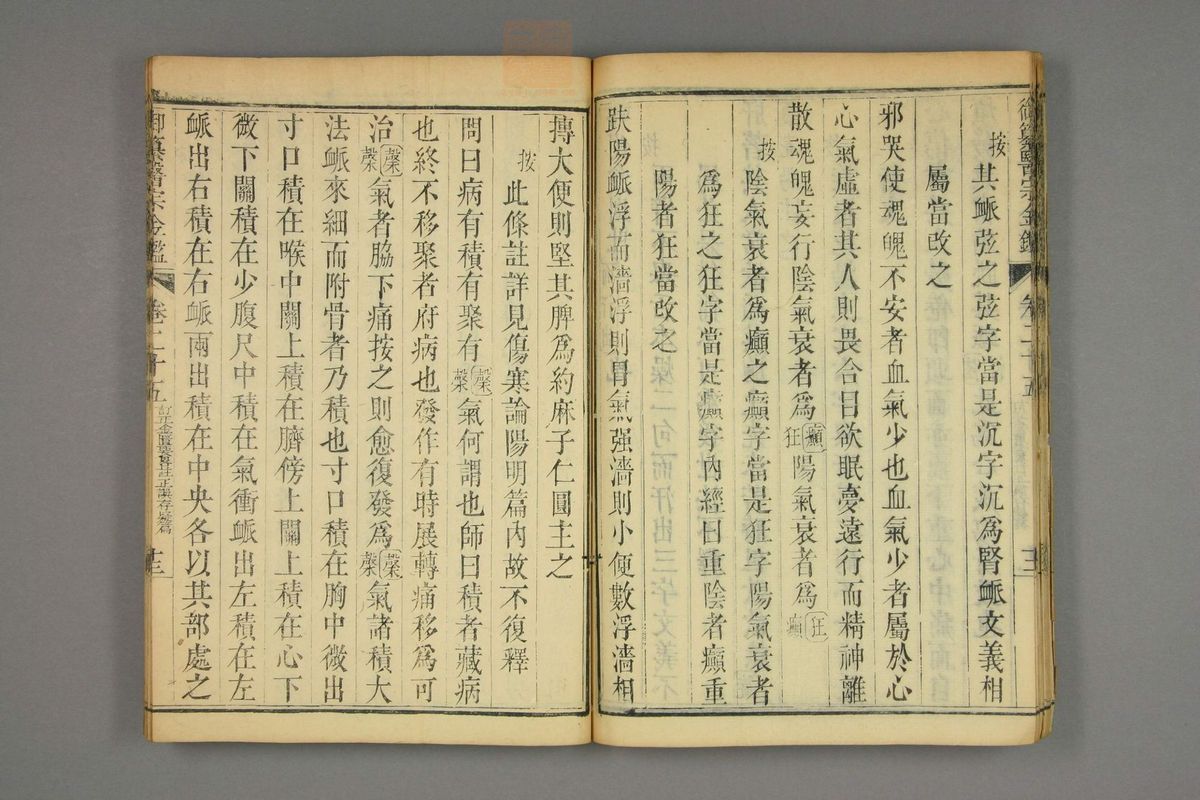 御纂醫宗金鑑 卷二十五 十三
按其衇弦之弦字當是沉字沉爲腎衇文義相
屬當改之
邪哭使魂魄不安者血氣少也血氣少者屬於心
心氣虛者其人則畏合目欲眠夢遠行而精神離
散魂魄妄行陰氣衰者爲癲狂陽氣衰者爲狂癲
按陰氣衰者爲癲之癲字當是狂字陽氣衰者
爲狂之狂字當是癲字內經曰重陰者癲重
陽者狂當改之
趺陽衇浮而濇浮則胃氣强濇則小便數浮濇相
摶大便則堅其脾爲約麻子仁圓主之
按此條註詳見傷寒論陽明篇內故不復釋
問曰病有積有聚有䅽氣何謂也師曰積者藏病
也終不移聚者府病也發作有時展轉痛移爲可
治䅽氣者脇下痛按之則愈復發爲䅽氣諸積大
法衇來細而附骨者乃積也寸口積在胸中微出
寸口積在喉中關上積在臍傍上關上積在心下
微下關積在少腹尺中積在氣衝衇出左積在左
衇出右積在右衇兩出積在中央各以其部處之
御纂醫宗金鑑 卷二十五 訂正金匱要畧註正誤存疑篇 十三